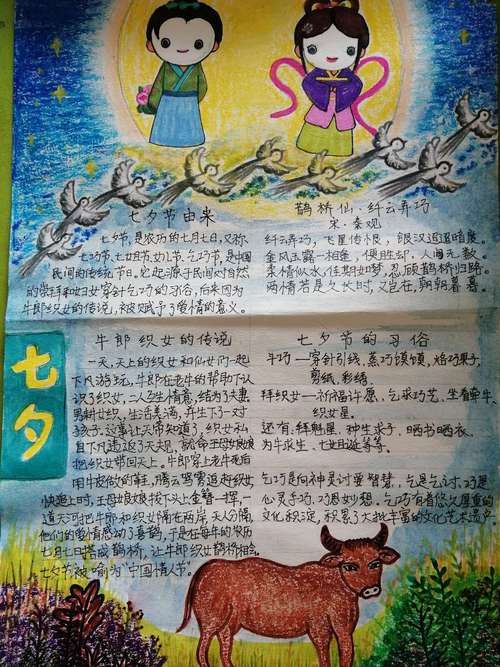 七夕节由来
七夕节,是农历的七月七日,又称、
七巧节、七姐节、女儿节、乞巧节,是中国
民间的传统节日。它起源于民间对自然
的崇拜和妇女穿针乞巧的习俗,后来因为
牛郎织女的传说,被赋予了爱情的意义。
鹊桥仙·纤云弄巧
宋·秦观
纤云弄巧,飞星传恨,银汉迢迢暗度。
金风玉露一相逢,便胜却,人间无数。
柔情似水,佳期如梦,忍顾鹊桥归路。
两情若是久长时,又岂在,朝朝暮暮。
七夕
牛郎织女的传说
一天,天上的织女和仙女们一起
下凡游玩,牛郎在老牛的帮助下认
识了织女,二人互生情意,结为了夫妻
男耕女织,生活美满,并生下了一对
孩子,这事让天帝知道了,织女私
自下凡违反了天规,就命王母娘娘
把织女带回天上。牛郎穿上老牛死后
用牛皮做的鞋,腾云驾雾追赶织女
快追上时,王母娘娘拔下头上金簪一挥,一
道天河把牛郎和织女隔在两岸,天人分隔,
他们的爱情感动了喜鹊,于是在每年的农历
七月七日搭成鹊桥,让牛郎织女鹊桥相会
七夕节被喻为“中国情人节”。
七夕节的习俗
牛巧——穿针引线,蒸巧馍馍,烙巧果子,
剪纸,彩绣
拜织女——祈福许愿、乞求巧艺、坐看牵牛、
织女星。
还有:拜魁星,种生求子、晒书晒衣、
为牛庆生、七女诞等等。
乞巧是向神灵讨要智慧,乞是乞讨、巧是
心灵手巧、巧思妙想,乞巧有着悠久厚重的
文化积淀,积累了大批丰富的文化艺术遗产